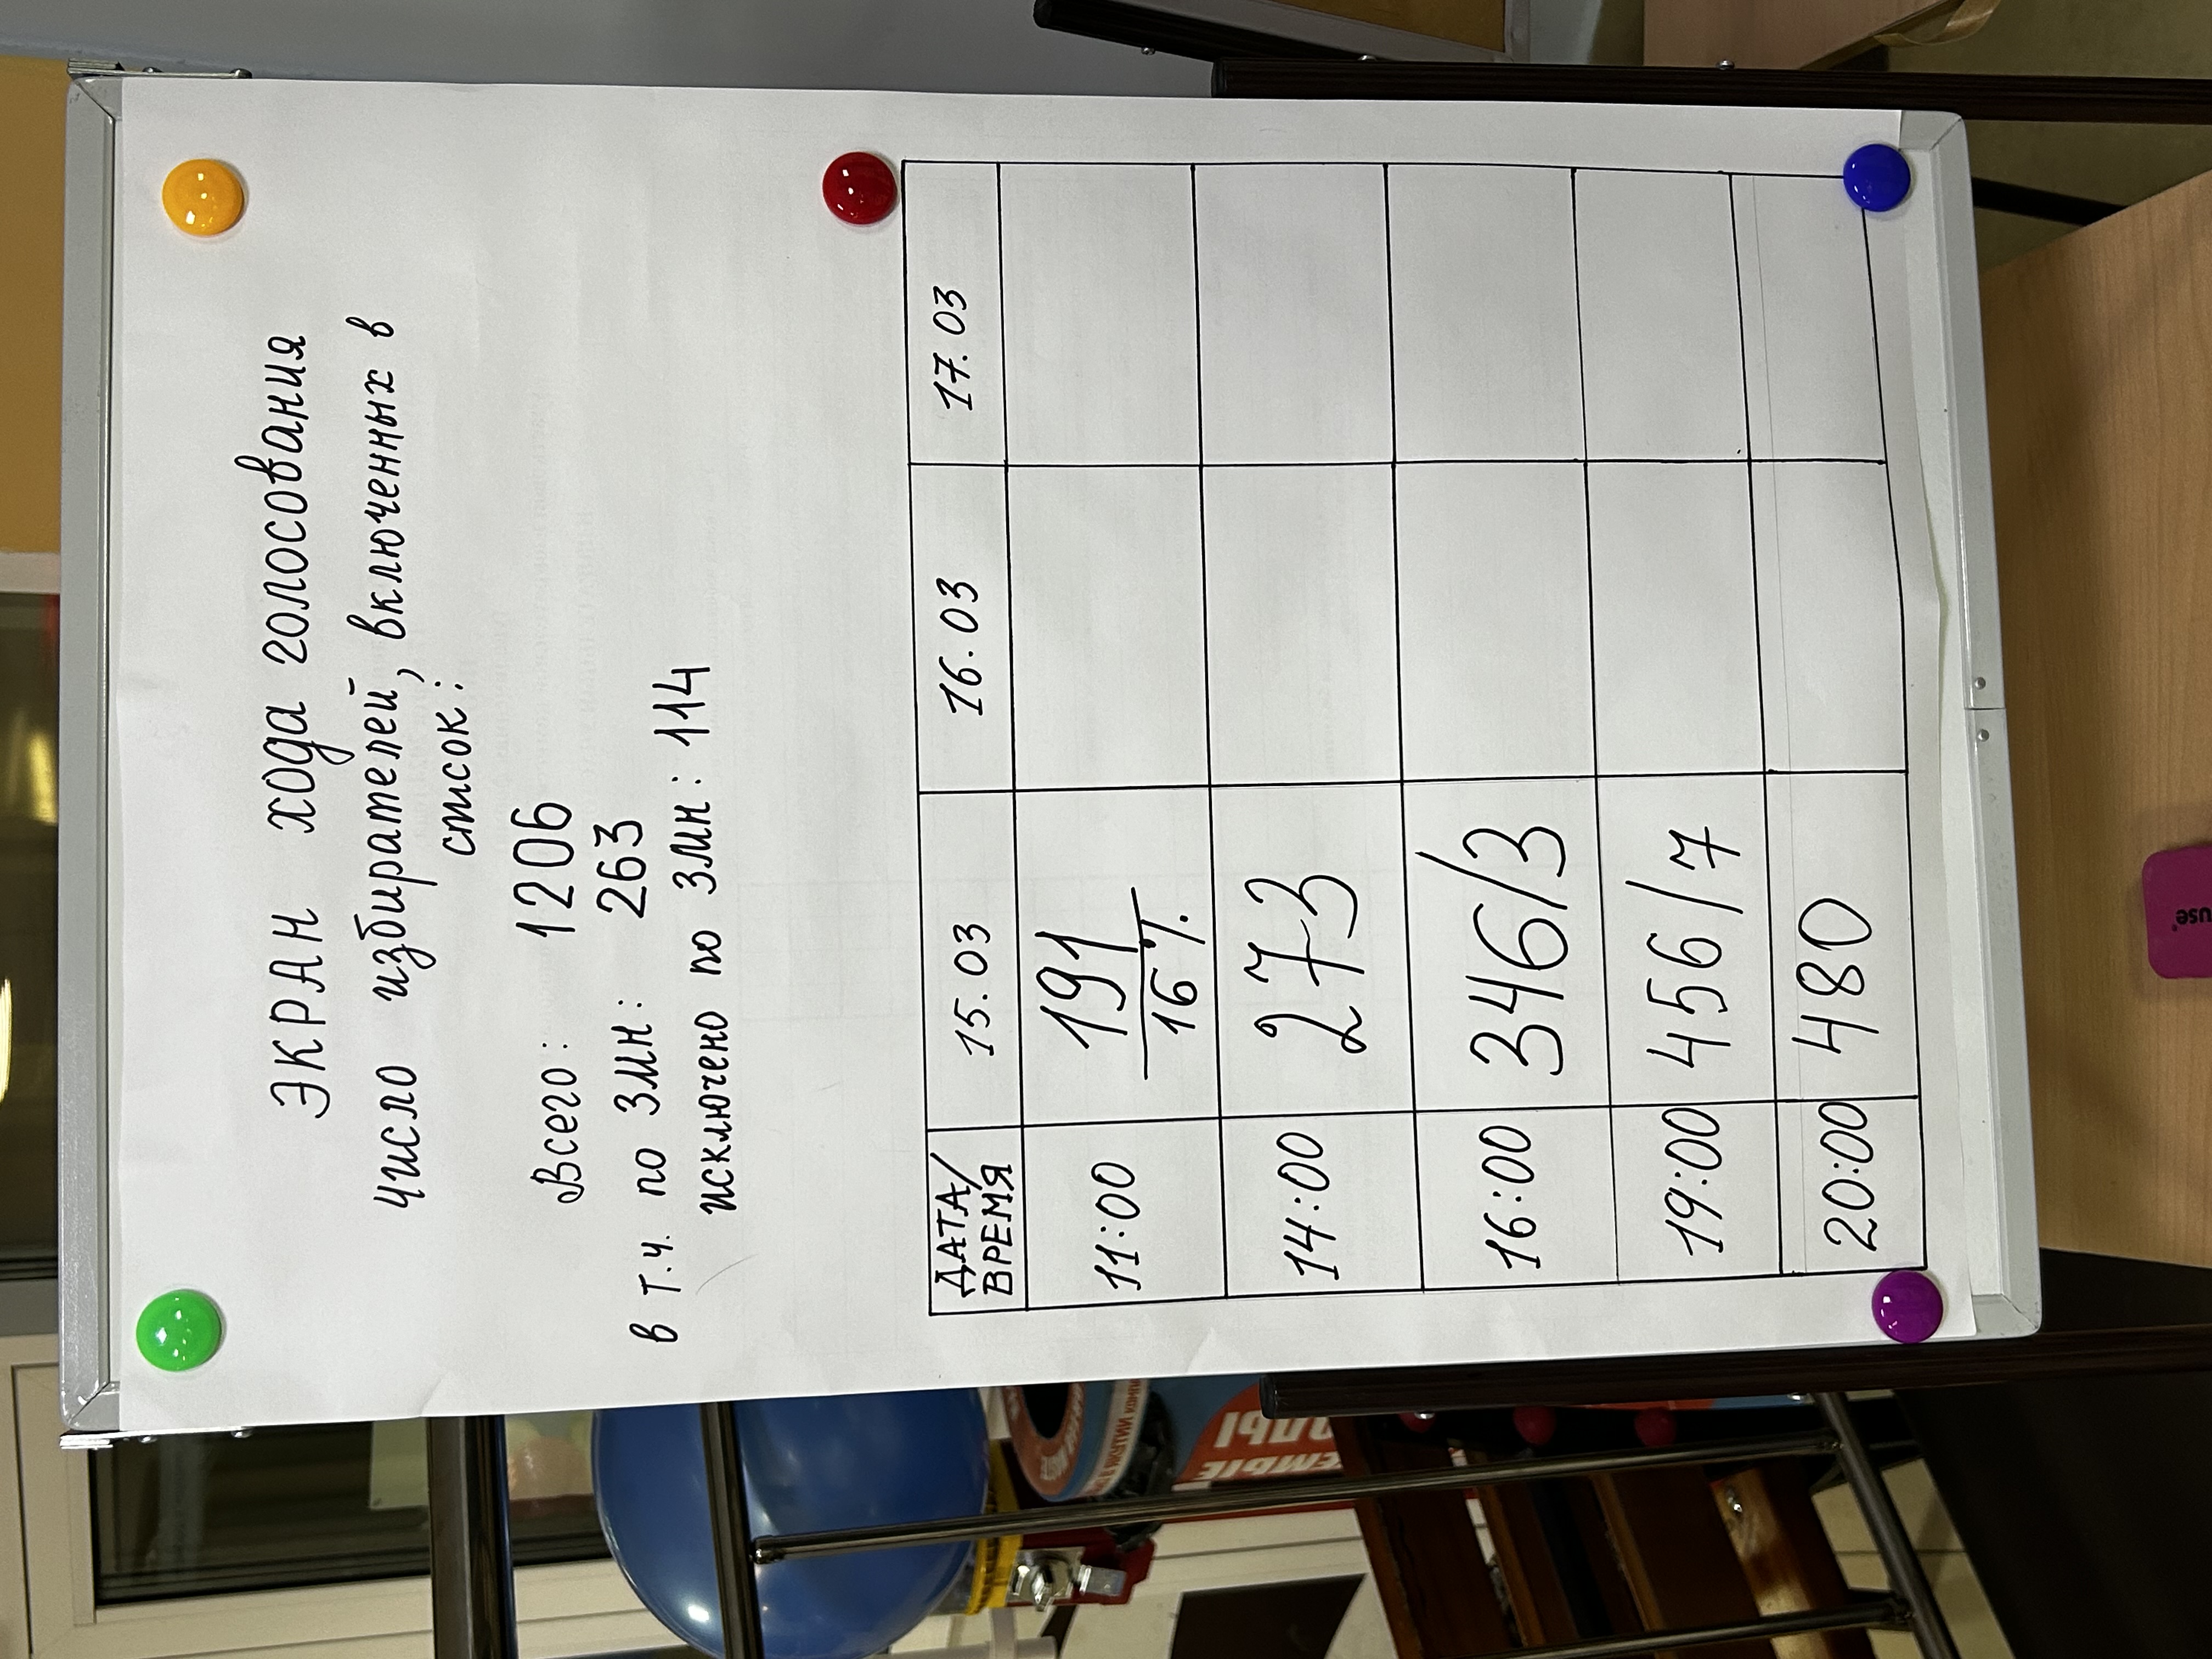 ЭКРАН хода голосования
число избирателей, включенных в
список:
Всего: 1206
в т.ч. по ЗМН: 263
исключено по ЗМН: 114
ДАТА/ВРЕМЯ 15.03 16.03 17.03
11:00 191/16%
14:00 273
16:00 346/3
19:00 456/7
20:00 480
use